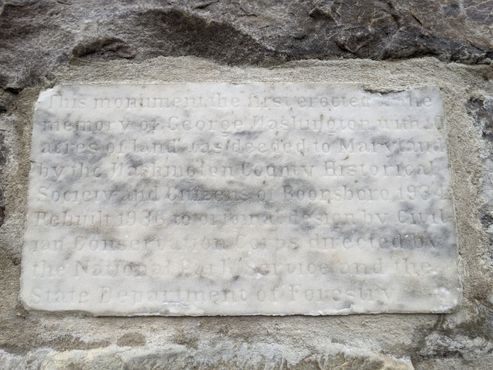 This monument the first erected to the
memory of George Washington with
acres of land was deeded to Maryland
by the Washington County Historical
Society and Citizens of Boonsboro 1934
Rebuilt 1936 to original design by Civil
ian Conservation Corps directed by
the National Park Service and the
State Department of Foresby